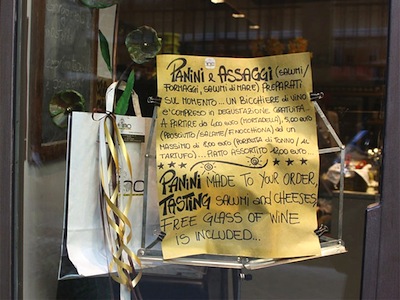 PANINI e ASSAGGI (SALUMI/
FORMAGGI, SALUMI di MARE) PREPARATI
SUL MOMENTO... UN BICCHIERE di VINO
e' COMPRESO in DEGUSTAZIONE GRATUITA
A PARTIRE da 4,00 euro (MORTADELLA), 5,00 euro
(PROSCIUTTO/SALAME/FINOCCHIONA) ad un
MASSIMO di euro (PORCHETTA di TONNO/AL
TARTUFO)... PIATTO ASSORTITO euro
PANINI MADE TO YOUR ORDER,
TASTING SALUMI and CHEESES,
FREE GLASS OF WINE
IS INCLUDED...